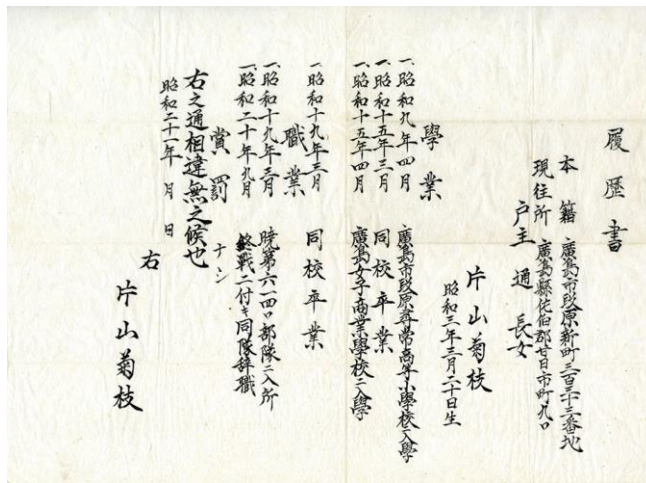 履歴書
本籍 廣島市段原新町三百三十三番地
現住所 廣島縣佐伯郡廿日市町九口
戸主 通 長女
片山菊枝
昭和三年三月二十日生
學業
一、昭和九年四月 廣島市段原尋常高等小學校ニ入學
一、昭和十五年三月 同校卒業
一、昭和十五年四月 廣島女子商業學校ニ入學
一、昭和十九年三月 同校卒業
職業
一、昭和十九年三月 暁第六一四〇部隊ニ入所
一、昭和二十年九月 終戰ニ付キ同隊辞職
賞罰 ナシ
右之通相違無之候也
昭和二十一年 月 日
右 片山菊枝